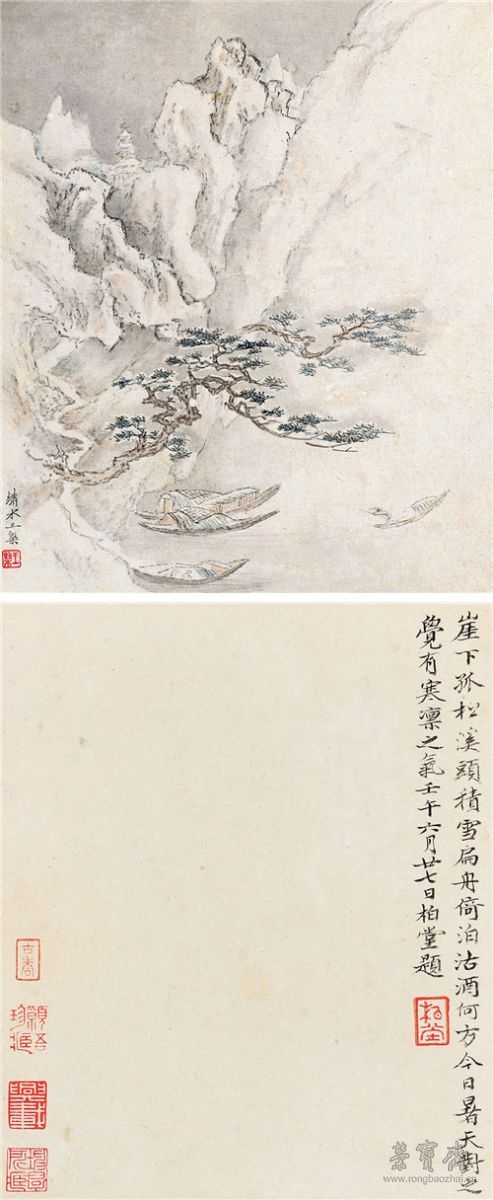 繡水王槩
崖下孤松溪頭積雪扁舟倚泊沽酒何方今日暑天對之
覺有寒凛之氣壬午六月廿七日柏堂題
古香
柏堂
榮寶齋
www.rongbaozhai.cn